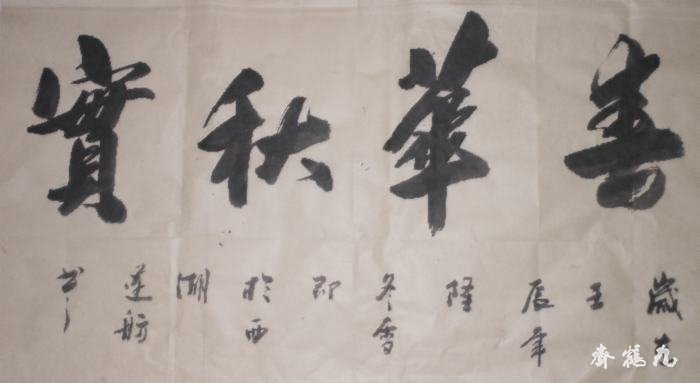 春華秋實
歲在
壬
辰年
隆
冬書
即
於西
湖
蓮舫
書
九鶴齋